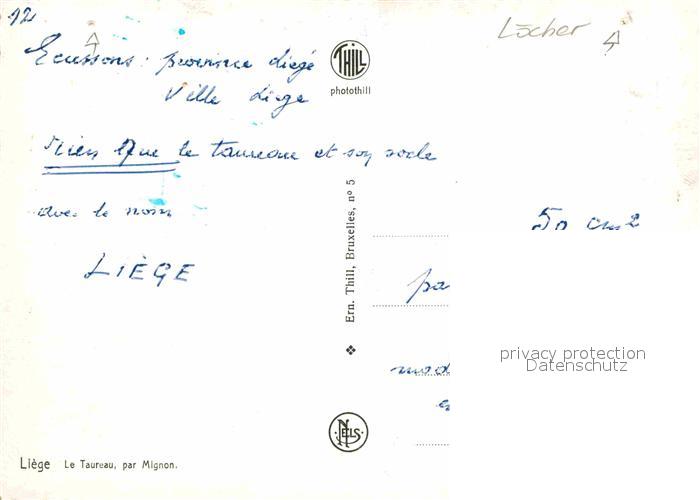 12
Löcher
Ecussons: province Liège
Ville Liège
THILL
photothill
Rien que le taureau et son socle
avec le nom
LIÈGE
50 cm2
Ern. Thill, Bruxelles, n° 5
pa
mod
privacy protection
Datenschutz
NELS
Liège Le Taureau, par Mignon.